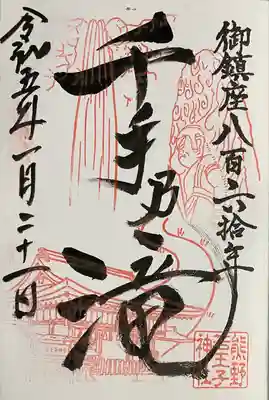 御鎮座八百六拾年
千手乃滝
令和五年一月二十一日
熊野
若王子
神社